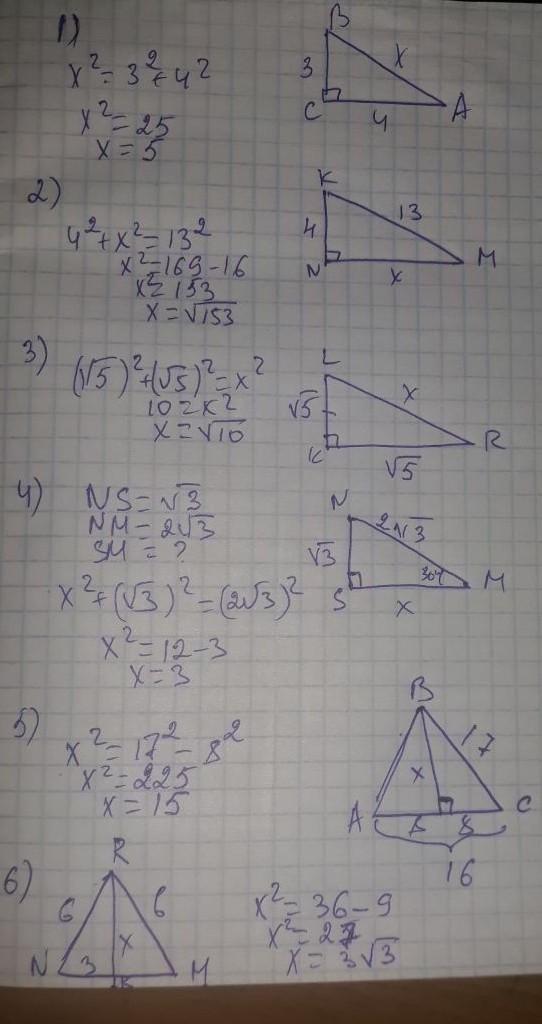 1)
x² = 3² + 4²
x² = 25
x = 5
B
3
x
C
4
A
2)
4² + x² = 13²
x² = 169 - 16
x² = 153
x = √153
K
4
13
N
x
M
3)
(√5)² + (√5)² = x²
10 = x²
x = √10
L
√5
x
K
√5
R
4)
NS = √3
NM = 2√3
SM = ?
x² + (√3)² = (2√3)²
x² = 12 - 3
x = 3
N
2√3
√3
S
x
M
5)
x² = 17² - 8²
x² = 225
x = 15
B
17
x
A
8
8
C
16
6)
R
6
6
x
N
3
M
x² = 36 - 9
x² = 27
x = 3√3